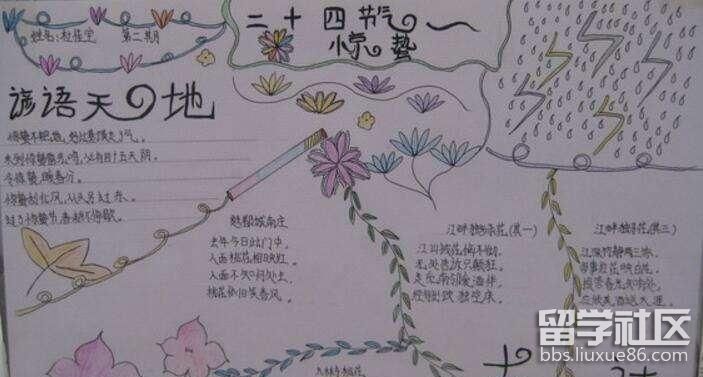 二十四节气
惊蛰
第二期
谚语天地
惊蛰不耙地，好比蒸馍走了气。
未到惊蛰雷先鸣，必有四十五天阴。
冷惊蛰，暖春分。
惊蛰刮北风，从头另过冬。
过了惊蛰节，春耕不停歇。
题都城南庄
去年今日此门中，
人面桃花相映红。
人面不知何处去，
桃花依旧笑春风。
江畔独步寻花(其一)
江上被花恼不彻，
无处告诉只颠狂。
走觅南邻爱酒伴，
经旬出饮独空床。
江深竹静两三家，
多事红花映白花。
报答春光知有处，
应须美酒送生涯。
留学社区
bbs.liuxue86.com